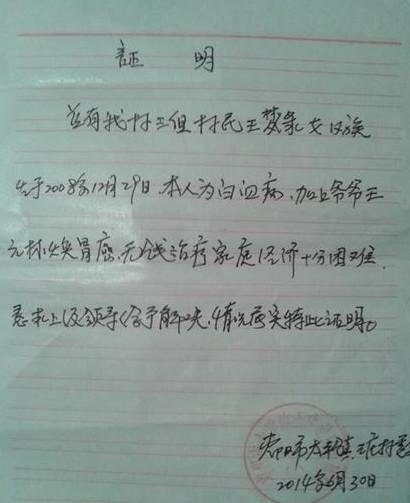 証 明
兹有我村三组村民王梦家女汉族
生于2008年12月29日,本人为白血病,加上爷爷王
元林患胃癌,无钱治疗家庭经济十分困难.
恳求上级领导给予解决,情况属实特此证明。
枣阳市太平镇王庄村委
2014年6月30日